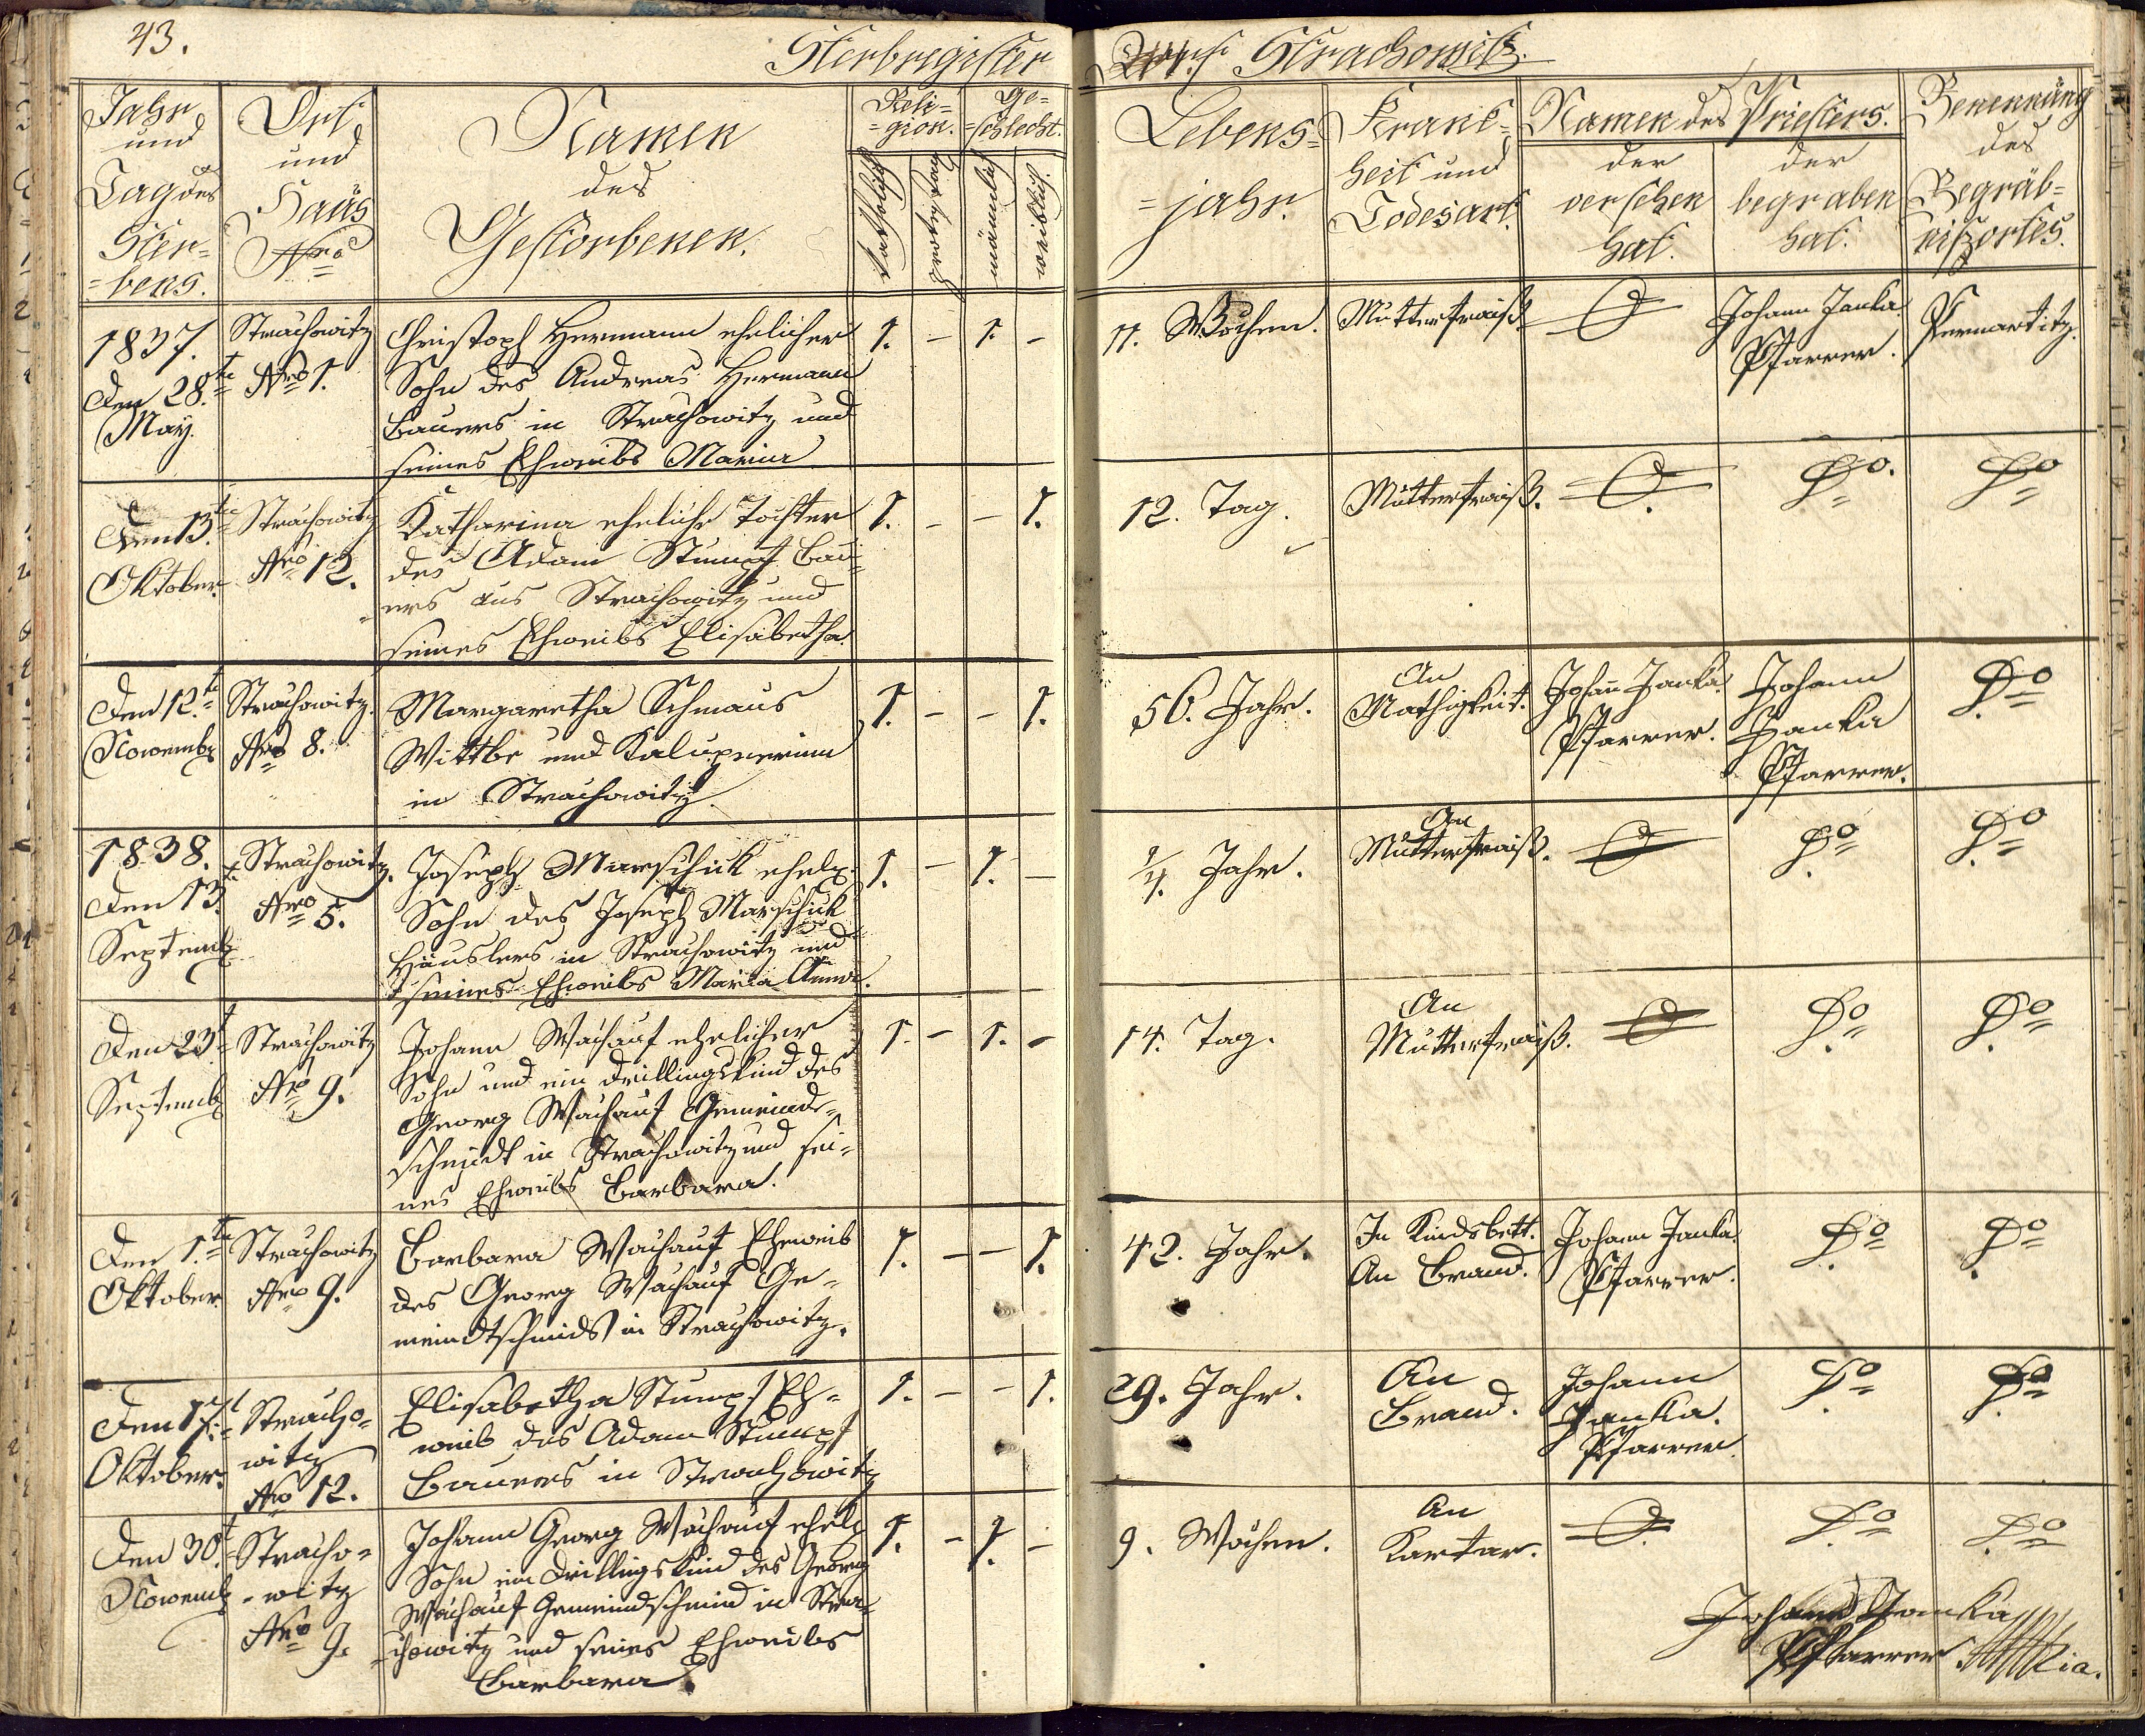 43.
Sterbregister
Dorf Strachowitz.
Jahr
und
Tag des
Ster=
=bens.
Ort
und
Haus
Nro
Namen
des
Gestorbenen.
Reli=
=gion.
katholisch
Ge=
=schlecht.
männlich
weiblich.
Lebens=
=jahr.
Krank=
heit und
Todesart.
Namen des Priesters.
der
versehen
hat.
der
begraben
hat.
Benennung
des
Begräb=
nißortes.
1837.
Den 28.te
May.
Strachowitz
Nro 1.
Christoph Hermann ehelicher
Sohn des Andreas Hermann
Bauers in Strachowitz und
seines Eheweibs Maria
1. - 1. -
11. Wochen.
Mutterfraiß
O
Johann Janka
Pfarrer.
Pernartitz.
Den 13.te
Oktober.
Strachowitz
Nro 12.
Katharina eheliche Tochter
des Adam Stumpf Bau=
ers aus Strachowitz und
seines Eheweibs Elisabetha.
1. - - 1.
12. Tag.
Mutterfraiß.
O
Do.
Do
Den 12.t
Novemb
Strachowitz.
Nro 8.
Margaretha Schmaus
Wittbe und Kalupnerinn
in Strachowitz.
1. - - 1.
56. Jahr.
An
Mathigkeit.
Johañ Janka
Pfarrer.
Johann
Janka
Pfarrer.
Do
1838.
Den 13.t
Septemb
Strachowitz.
Nro 5.
Joseph Marschik ehel.
Sohn des Joseph Marschik
Häuslers in Strachowitz und
seines Eheweibs Maria Anna.
1. - 1. -
Jahr.
An
Mutterfraiß.
O
Do
Do
Den 23.t
Septemb
Strachowitz
Nro 9.
Johann Wachauf ehelicher
Sohn und ein Drillingskind des
Georg Wachauf Gemeinde=
schmidt in Strachowitz und sei=
nes Eheweibs Barbara.
1. - 1. -
14. Tag.
An
Mutterfraiß.
O
Do
Do
Den 1.te
Oktober
Strachowitz
Nro 9.
Barbara Wachauf Eheweib
des Georg Wachauf Ge=
meindtschmids in Strachowitz.
1. - - 1.
42. Jahr.
In Kindsbett.
An Brand.
Johann Janka
Pfarrer.
Do
Do
Den 17.t
Oktober.
Stracho=
witz
Nro 12.
Elisabetha Stumpf Eh=
weib des Adam Stumpf
Bauers in Strachowitz
1. - - 1.
29. Jahr.
An
Brand.
Johann
Janka.
Pfarrer
Do
Do
Den 30.t
Novemb
Stracho=
-witz
Nro 9.
Johann Georg Wachauf ehel
Sohn ein Drillingskind des Georg
Wachauf Gemeindschmid in Stra=
chowitz und seines Eheweibs
Barbara.
1. - 1. -
9. Wochen.
An
Kartar.
O
Do
Do
Johann Janka
Pfarrer